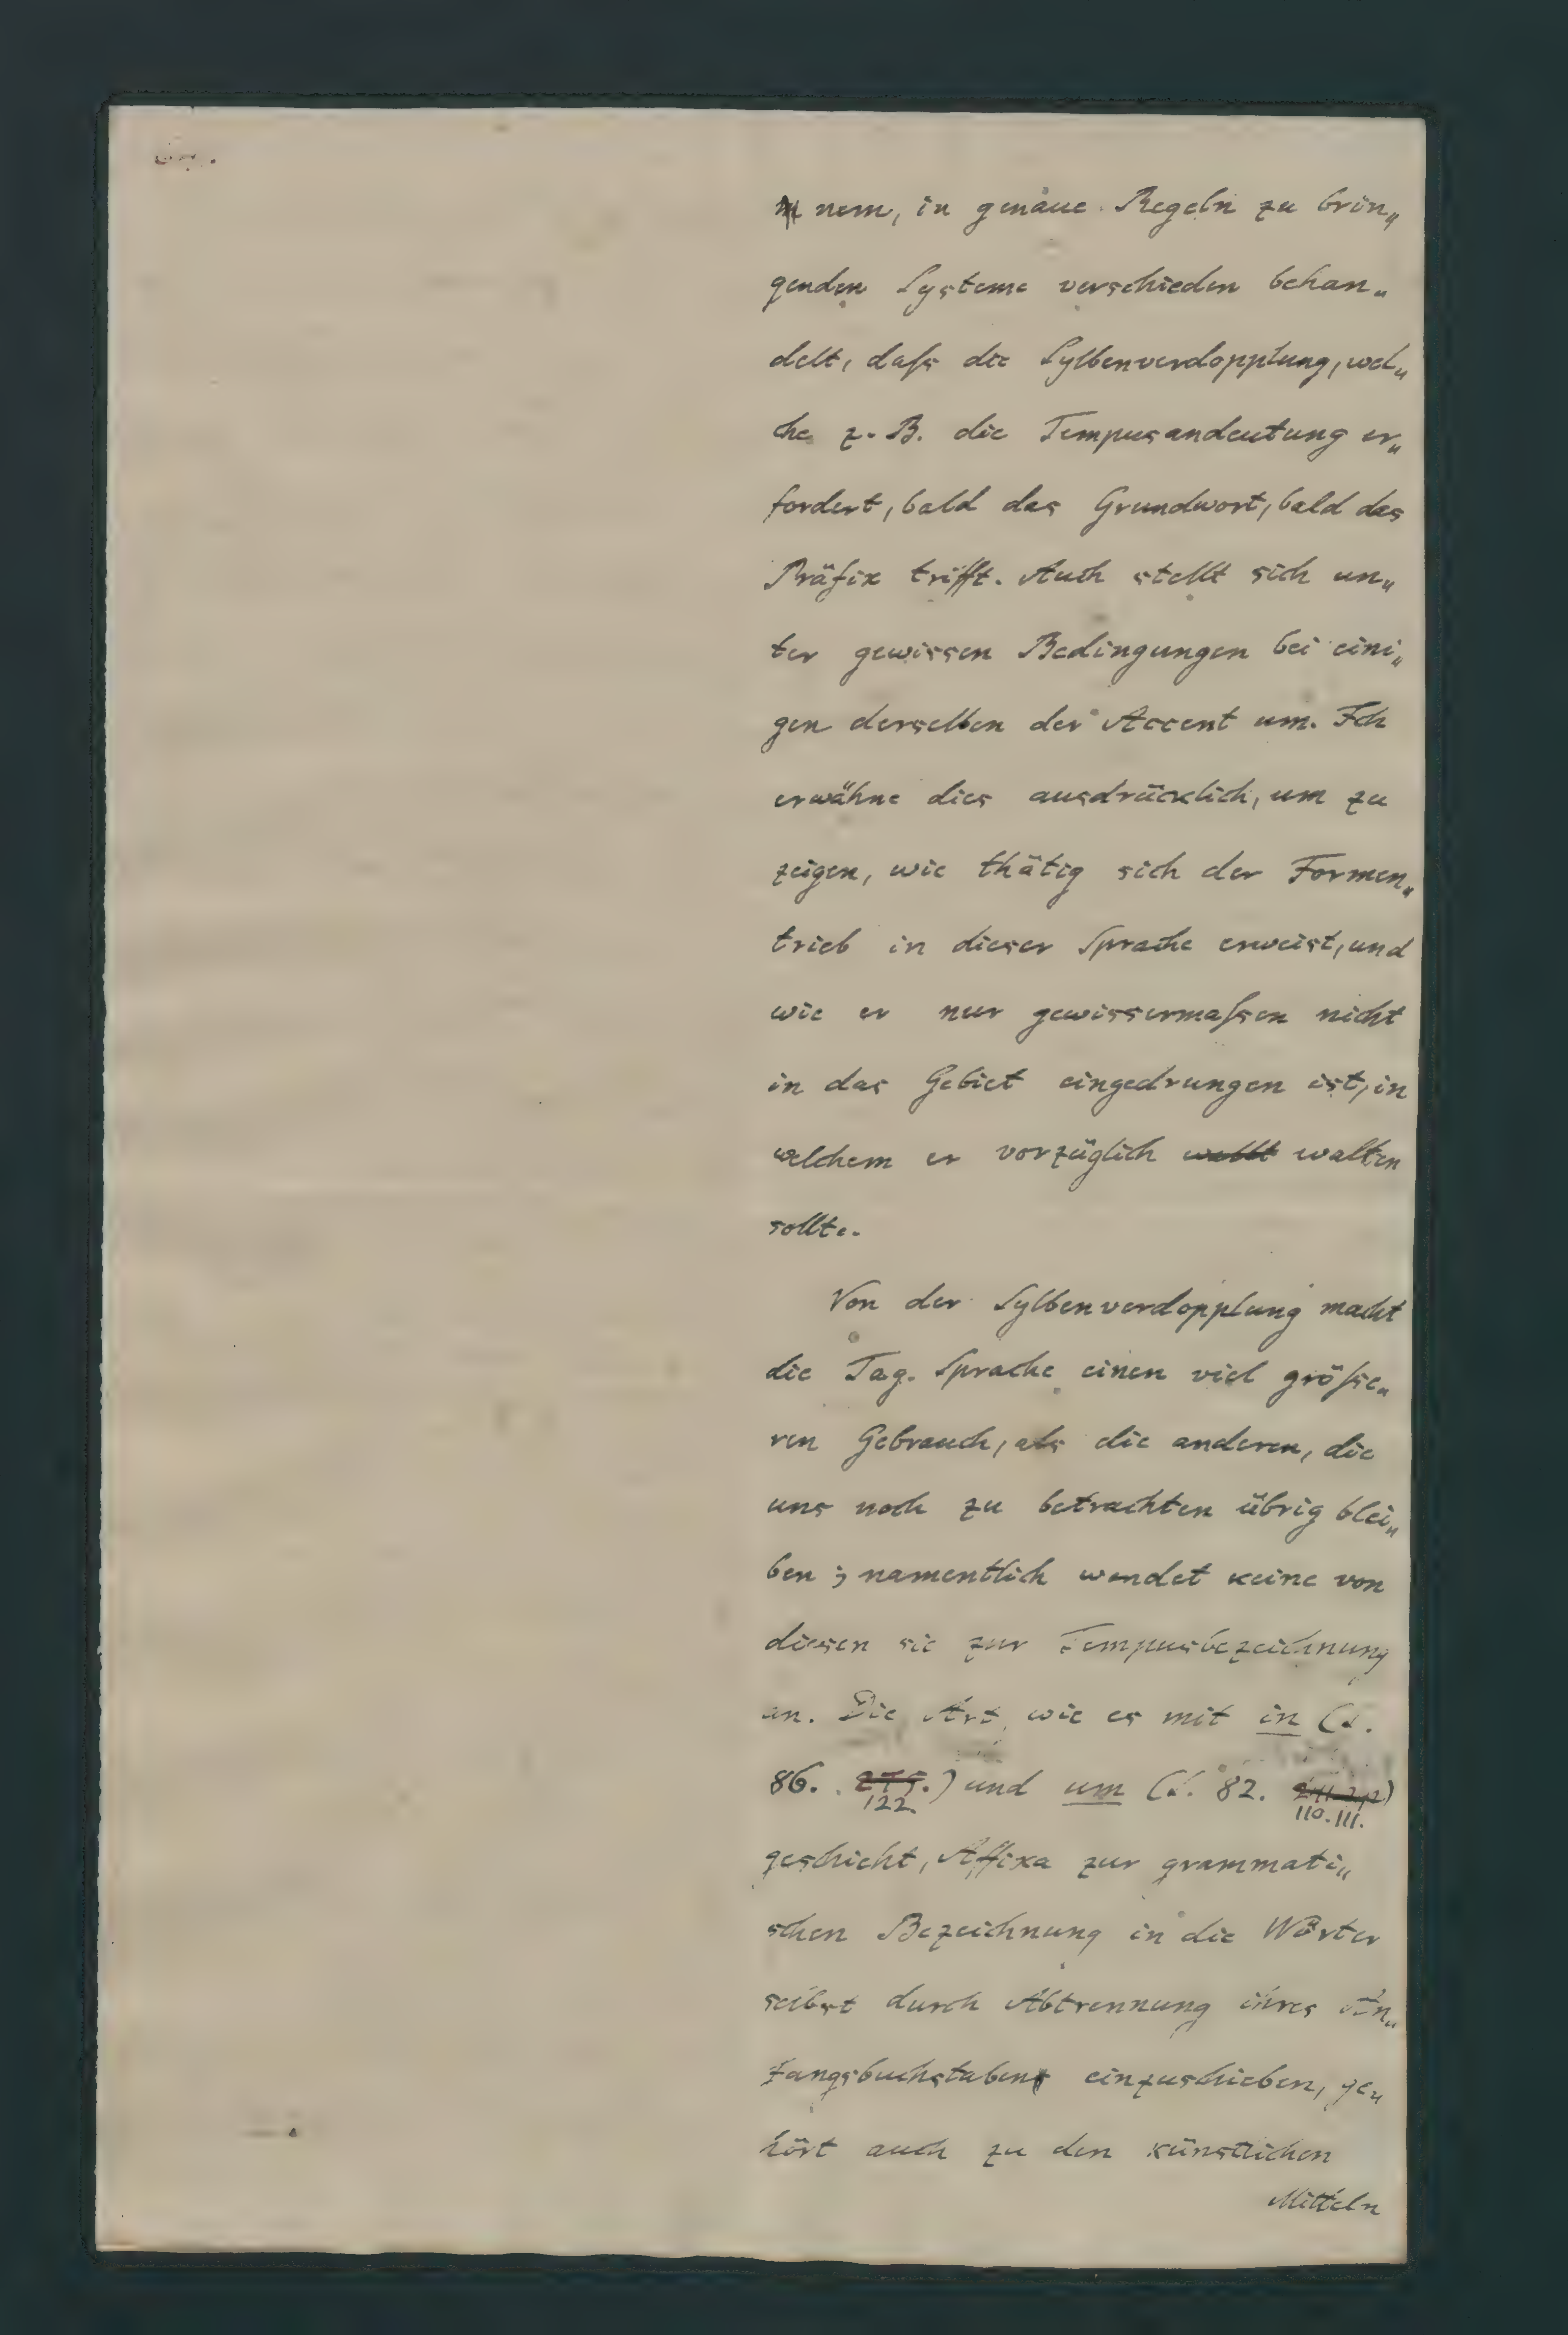 nem, in genaue Regeln zu brin„
genden Systeme verschieden behan„
delt, daſs die Sylbenverdopplung, wel„
che z. B. die Tempusandeutung er„
fordert, bald das Grundwort, bald das
Präfix trifft. Auch stellt sich un„
ter gewissen Bedingungen bei eini„
gen derselben der Accent um. Ich
erwähne dies ausdrücklich, um zu
zeigen, wie thätig sich der Formen„
trieb in dieser Sprache erweist, und
wie er nur gewissermaſsen nicht
in das Gebiet eingedrungen ist, in
welchem er vorzüglich walten
sollte.
Von der Sylbenverdopplung macht
die Tag. Sprache einen viel gröſse„
ren Gebrauch, als die anderen, die
uns noch zu betrachten übrig blei„
ben; namentlich wendet keine von
diesen sie zur Tempusbezeichnung
an. Die Art, wie es mit in (S.
86. 275.) und um (S. 82.
122. 110. 111.
geschieht, Affixa zur grammati„
schen Bezeichnung in die Wörter
selbst durch Abtrennung ihres An„
fangsbuchstaben einzuschieben, ge„
hört auch zu den künstlichen
Mitteln